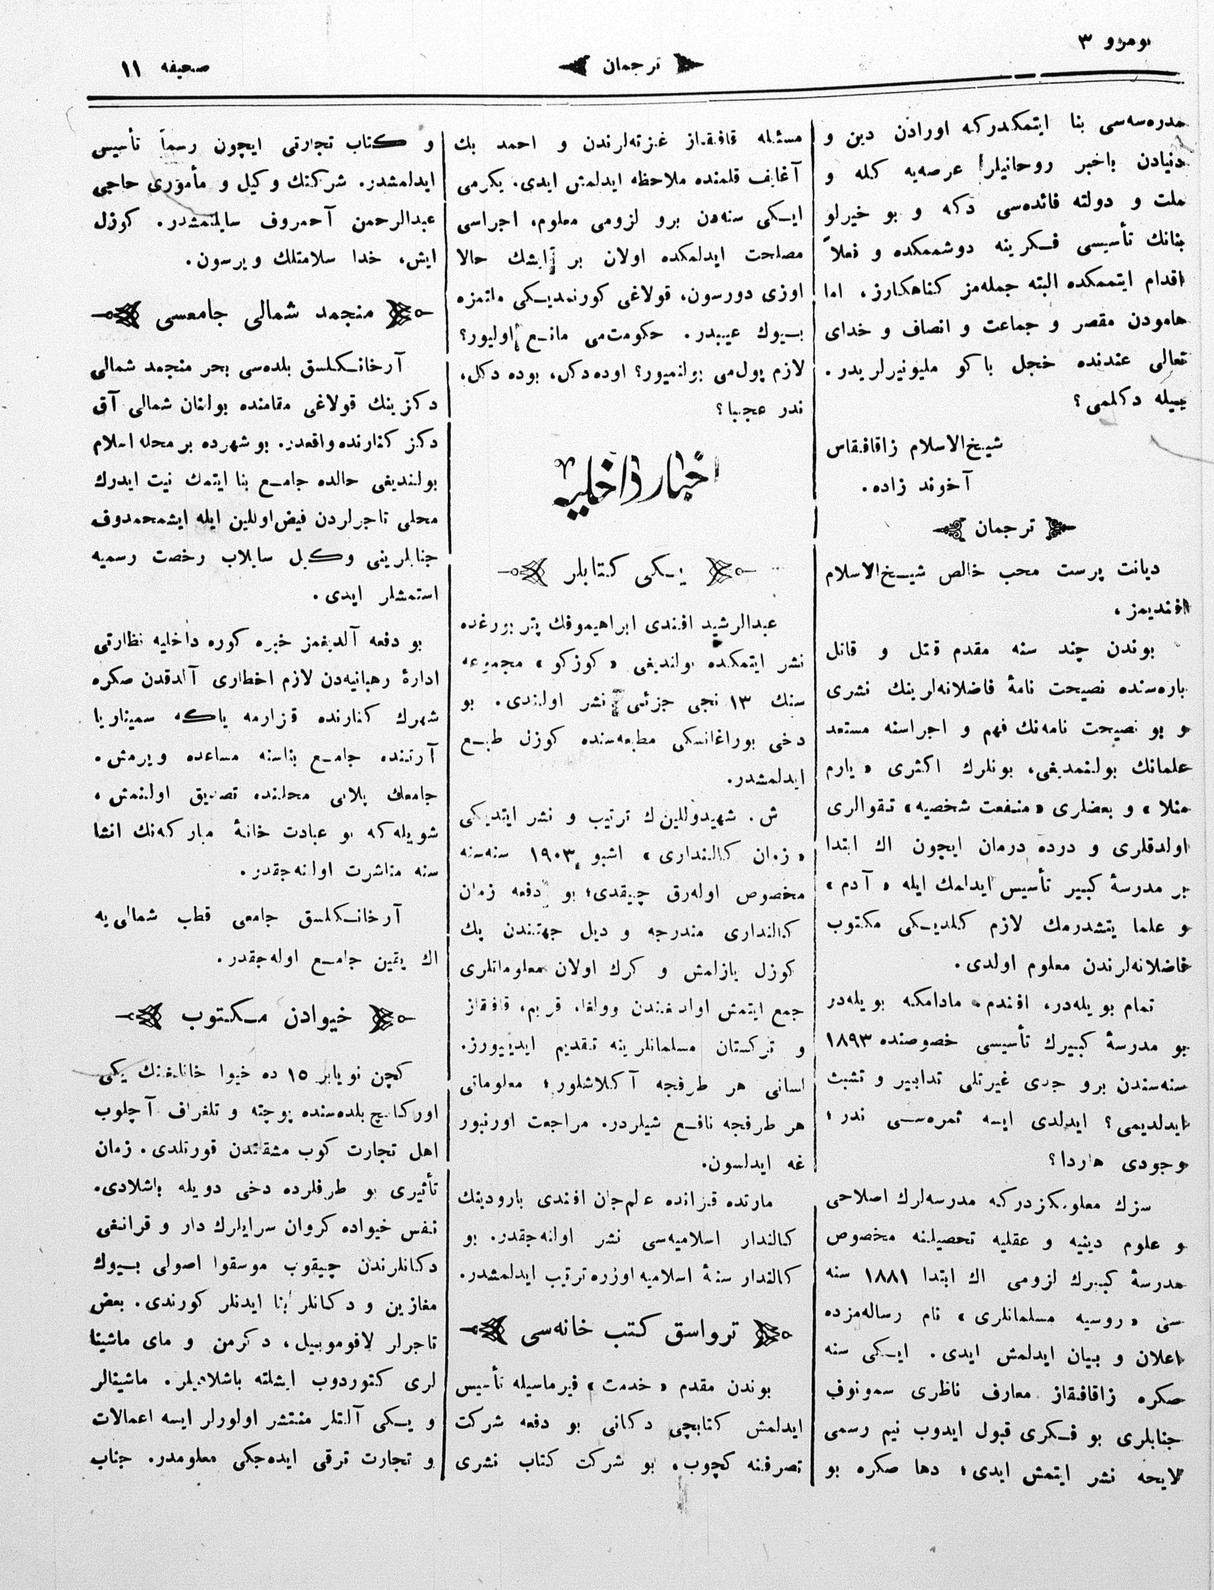 نومرو ٣
ترجمان
صحیفه ١١
مدرەسەسی بنا ایتمكدركه اورادن دین و
دنیادن باخبر روحانیلر عرصه‌یه كله و
ملت و دولته فائده‌سی دكه و بو خیرلو
بنانك تأسیسی فكرینه دوشممكده و فعلاً
اقدام ایتممكده البته جمله‌مز كناهكارز، اما
هامودن مقصر و جماعت و انصاف و خدای
تعالی عندنده خجل باكو ملیونیرلریدر.
بیله دكلمی؟
شیخ‌الاسلام زاقافقاس
آخوند زاده.
ترجمان
دیانت پرست محب خالص شیخ‌الاسلام
افندیمز،
بوندن چند سنه مقدم قتل و قاتل
باره‌سنده نصیحت نامهٔ فاضلانه‌لرینك نشری
و بو نصیحت نامه‌نك فهم و اجراسنه مستعد
علمانك بولنمدیغی، بونلرك اكثری «یارم
منلا» و بعضلری «منفعت شخصیه» تقوالری
اولدقلری و درده درمان ایچون اك ابتدا
بر مدرسهٔ كبیر تأسیس ایدلمك ایله «آدم»
و علما یتشدرمك لازم كلدیكی مكتوب
فاضلانه‌لرندن معلوم اولدی.
تمام بویله‌در، افندم. مادامكه بویله‌در
بو مدرسهٔ كبیرك تأسیسی خصوصنده ١٨٩٣
سنه‌سندن برو جدی غیرتلی تدابیر و تشبث
ایدلدیمی؟ ایدلدی ایسه ثمره‌سی ندر؛
وجودی هاردا؟
سزك معلومكزدركه مدرسه‌لرك اصلاحی
و علوم دینیه و عقلیه تحصیلنه مخصوص
مدرسهٔ كبیرك لزومی اك ابتدا ١٨٨١ سنه
سی «روسیه مسلمانلری» نام رساله‌مزده
اعلان و بیان ایدلمش ایدی. ایكی سنه
صكره زاقافقاز معارف ناظری سمونوف
جنابلری بو فكری قبول ایدوب نیم رسمی
لایحه نشر ایتمش ایدی؛ دها صكره بو
مسئله قافقاز غزته‌لرندن و احمد بك
آغایف قلمنده ملاحظه ایدلمش ایدی. یكرمی
ایكی سنه‌دن برو لزومی معلوم، اجراسی
مصلحت ایدلمكده اولان بر ایشك حالا
اوزی دورسون، قولاغی كورنمدیكی ملتمزه
بیوك عیبدر. حكومت‌می مانع اولیور؟
لازم پول‌می بولنمیور؟ اوده دكل، بوده دكل،
ندر عجبا؟
اخبار داخلیه
یكی كتابلر
عبدالرشید افندی ابراهیموفك پتربورغده
نشر ایتمكده بولندیغی «كوزكو» مجموعه
سنك ١٣ نجی جزئی نشر اولندی. بو
دخی بوراغانسكی مطبعه‌سنده كوزل طبع
ایدلمشدر.
ش. شهیدوللین‌ك ترتیب و نشر ایتدیكی
«زمان كالنداری» اشبو ١٩٠٣ سنه‌سنه
مخصوص اوله‌رق چیقدی؛ بو دفعه زمان
كالنداری مندرجه و دیل جهتندن پك
كوزل یازلمش و كرك اولان معلوماتلری
جمع ایتمش اولدیغندن وولغا، قریم، قافقاز
و تركستان مسلمانلرینه تقدیم ایدییورز.
لسانی هر طرفجه آكلاشلور؛ معلوماتی
هر طرفجه نافع شیلردر. مراجعت اورنبور
غه ایدلسون.
مارتده قزانده عالم‌جان افندی بارودینك
كالندار اسلامیه‌سی نشر اولنه‌جقدر. بو
كالندار سنهٔ اسلامیه اوزره ترتیب ایدلمشدر.
ترواسق كتب خانه‌سی
بوندن مقدم «خدمت» فیرماسیله تأسیس
ایدلمش كتابچی دكانی بو دفعه شركت
تصرفنه كچوب، بو شركت كتاب نشری
و كتاب تجارتی ایچون رسماً تأسیس
ایدلمشدر. شركتك وكیل و مأموری حاجی
عبدالرحمن آحمروف سایلنمشدر. كوزل
ایش، خدا سلامتلك ویرسون.
منجمد شمالی جامعسی
آرخانكلسق بلده‌سی بحر منجمد شمالی
دكزینك قولاغی مقامنده بولنان شمالی آق
دكز كنارنده واقعدر. بو شهرده بر محله اسلام
بولندیغی حالده جامع بنا ایتمك نیت ایدرك
محلی تاجرلردن فیض‌اوللین ایله ایشمحمدوف
جنابلرینی وكیل سایلاب رخصت رسمیه
استمشلر ایدی.
بو دفعه آلدیغمز خبره كوره داخلیه نظارتی
ادارهٔ رهبانیه‌دن لازم اخطاری آلدقدن صكره
شهرك كنارنده قزارمه یاكه سمیناریا
آرتنده جامع بناسنه مساعده ویرمش.
جامعك پلانی محلنده تصدیق اولنمش،
شویله‌كه بو عبادت خانهٔ مباركه‌نك انشا
سنه مباشرت اولنه‌جقدر.
آرخانكلسق جامعی قطب شمالی‌یه
اك یقین جامع اوله‌جقدر.
خیوادن مكتوب
كچن نویابر ١٥ ده خیوا خانلیغنك یكی
اوركانچ بلده‌سنده پوچته و تلغراف آچلوب
اهل تجارت كوب مشقتدن قورتلدی. زمان
تأثیری بو طرفلرده دخی دویله باشلادی.
نفس خیواده كروان سرایلرك دار و قرانغی
دكانلرندن چیقوب موسقوا اصولی بیوك
مغازین و دكانلر بنا ایدنلر كورندی. بعض
تاجرلر لافوموبیل، دكرمن و مای ماشینا
لری كتوردوب ایشلته باشلادیلر. ماشینالر
و یكی آلتلر منتشر اولورلر ایسه اعمالات
و تجارت ترقی ایده‌جكی معلومدر. جناب